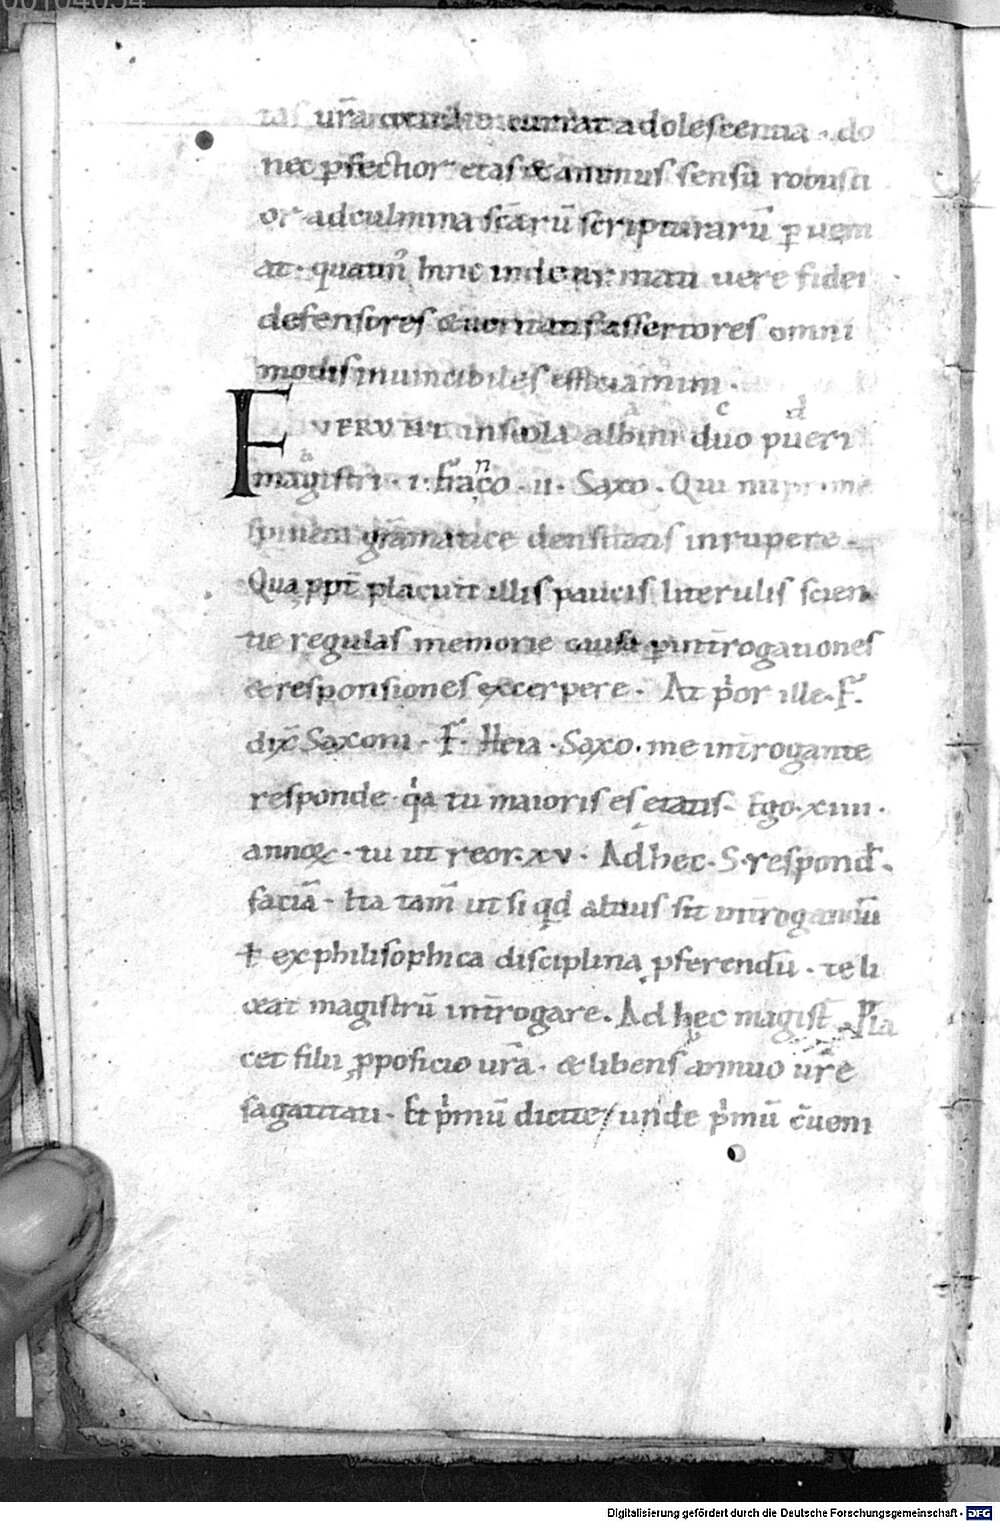 00104034
tas ur̄a cottidie currat adolescentia · do
nec ꝑfectior etas & animus sensu robusti
or ad culmina sc̄arū scripturarū ꝑueni
at · quatin᾿ hinc inde armati uere fidei
defensores & ueritatis assertores omni
modis inuincibiles efficiamini ·
FVERVNT in scola albini duo pueri
magistri · i · franco · ii · Saxo · Qui nuꝑrime
spinetā grāmatice densitatis inrupere
Qua ꝓpt̄ placuit illis paucis literulis scien
tie regulas memorie causa ꝑ int̄rogationes
& responsiones excerpere · At p̄or ille · F̄
dix̄ Saxoni · F · Heia · Saxo · me int̄rogante
responde · q̄a tu maioris es etatis · Ego · xiiii ·
annoꝝ · tu ut reor · xv · Ad hec · S · respond̄ ·
faciā · Ita tam̄ ut si qd̄ altius sit int̄rogandū
ł ex philisophica disciplina ꝓferendū · te li
ceat magistrū int̄rogare · Ad hęc magist̄ · Pla
cet filii ꝓpositio ur̄a · & libens annuo ur̄e
sagacitati · Et p̄mū dicite / unde p̄mū c̄ueni
Digitalisierung gefördert durch die Deutsche Forschungsgemeinschaft - DFG